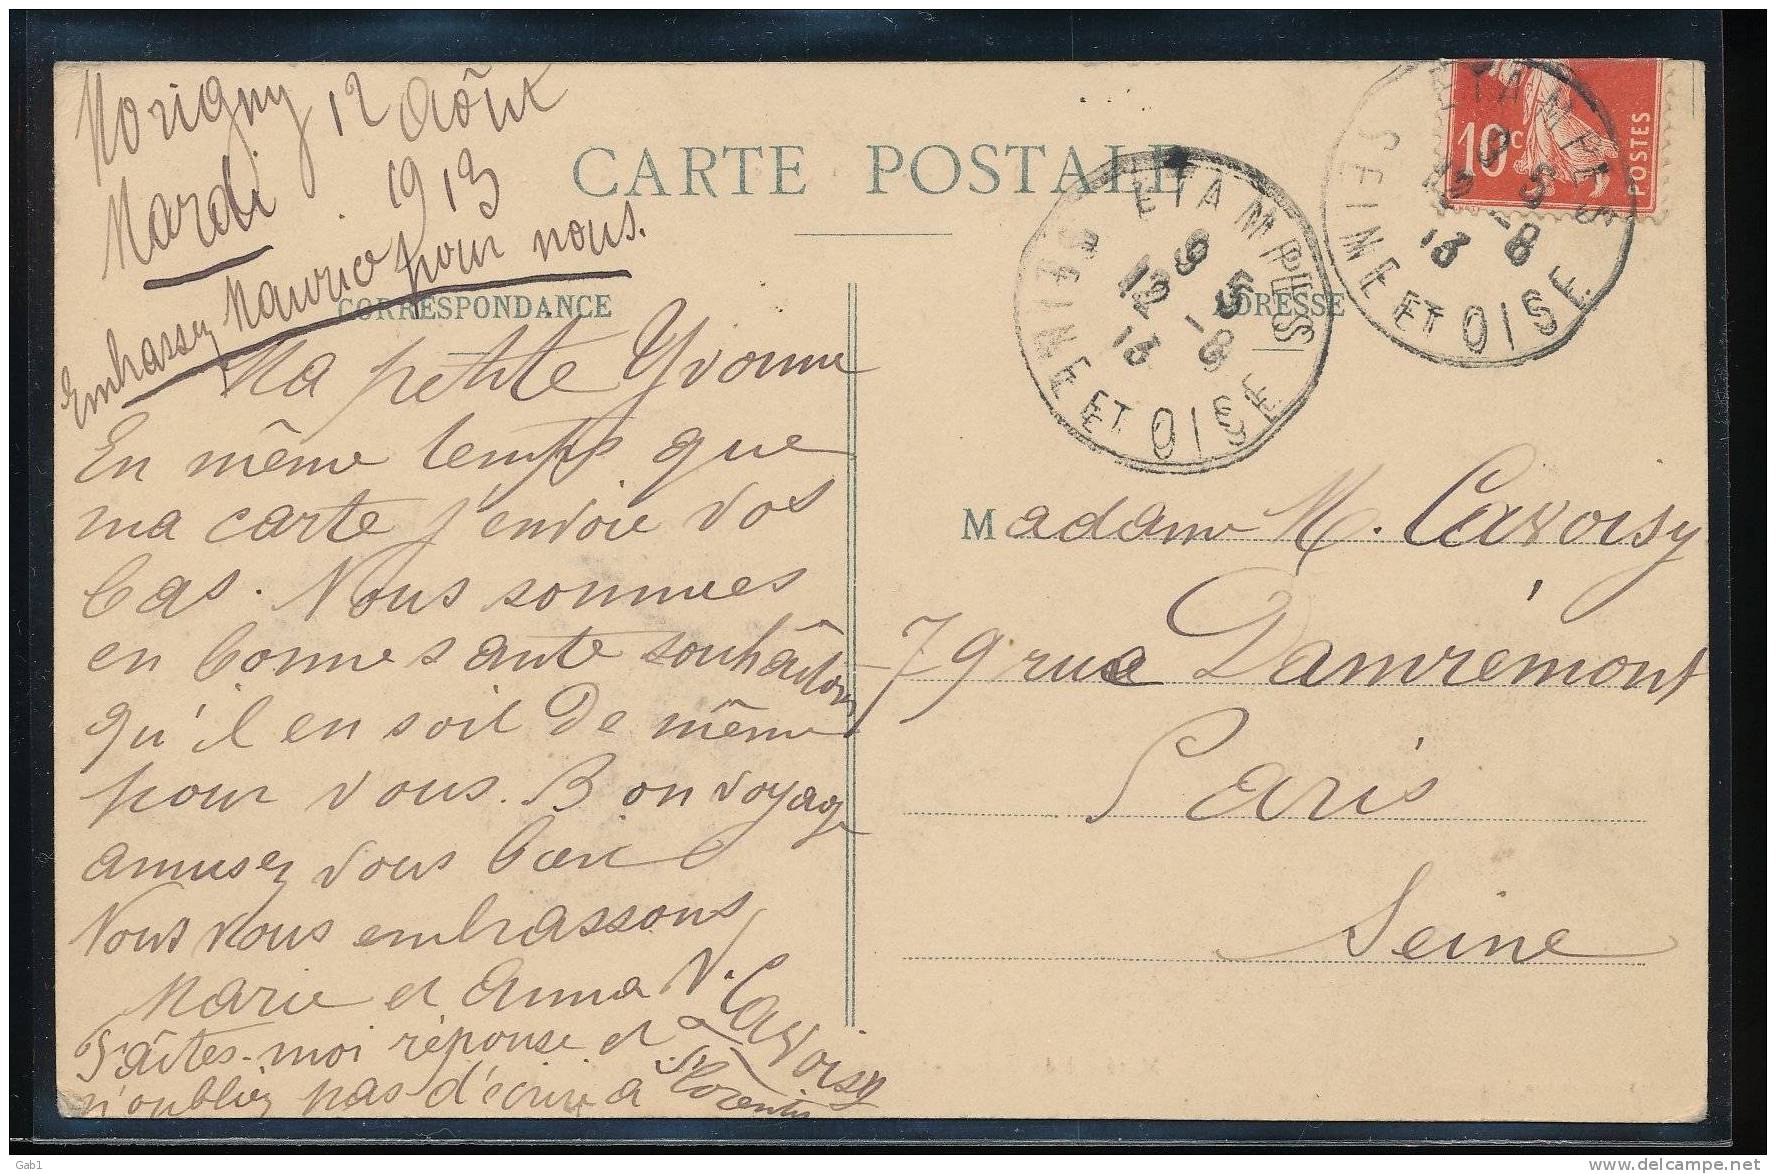 Morigny 12 Août
Mardi 1913
Embrassez Maurice pour nous.
CARTE POSTALE
CORRESPONDANCE
ADRESSE
Ma petite Yvonne
En même temps que
ma carte j'envoie vos
bas. Nous sommes
en bonne sante souhaitons
qu'il en soit de même
pour vous. Bon voyage
amusez vous bien
Nous vous embrassons
Marie et Anna V. Cavoisy
Faîtes-moi réponse et
n'oubliez pas d'écrire a Florentin
Madame M. Cavoisy
79 rue Damrémont
Paris
Seine
ETAMPES
9 5
12 -8
13
SEINE ET OISE
ETAMPES
9 5
12 -8
13
SEINE ET OISE
10c
POSTES
Gab1
delcampe.net